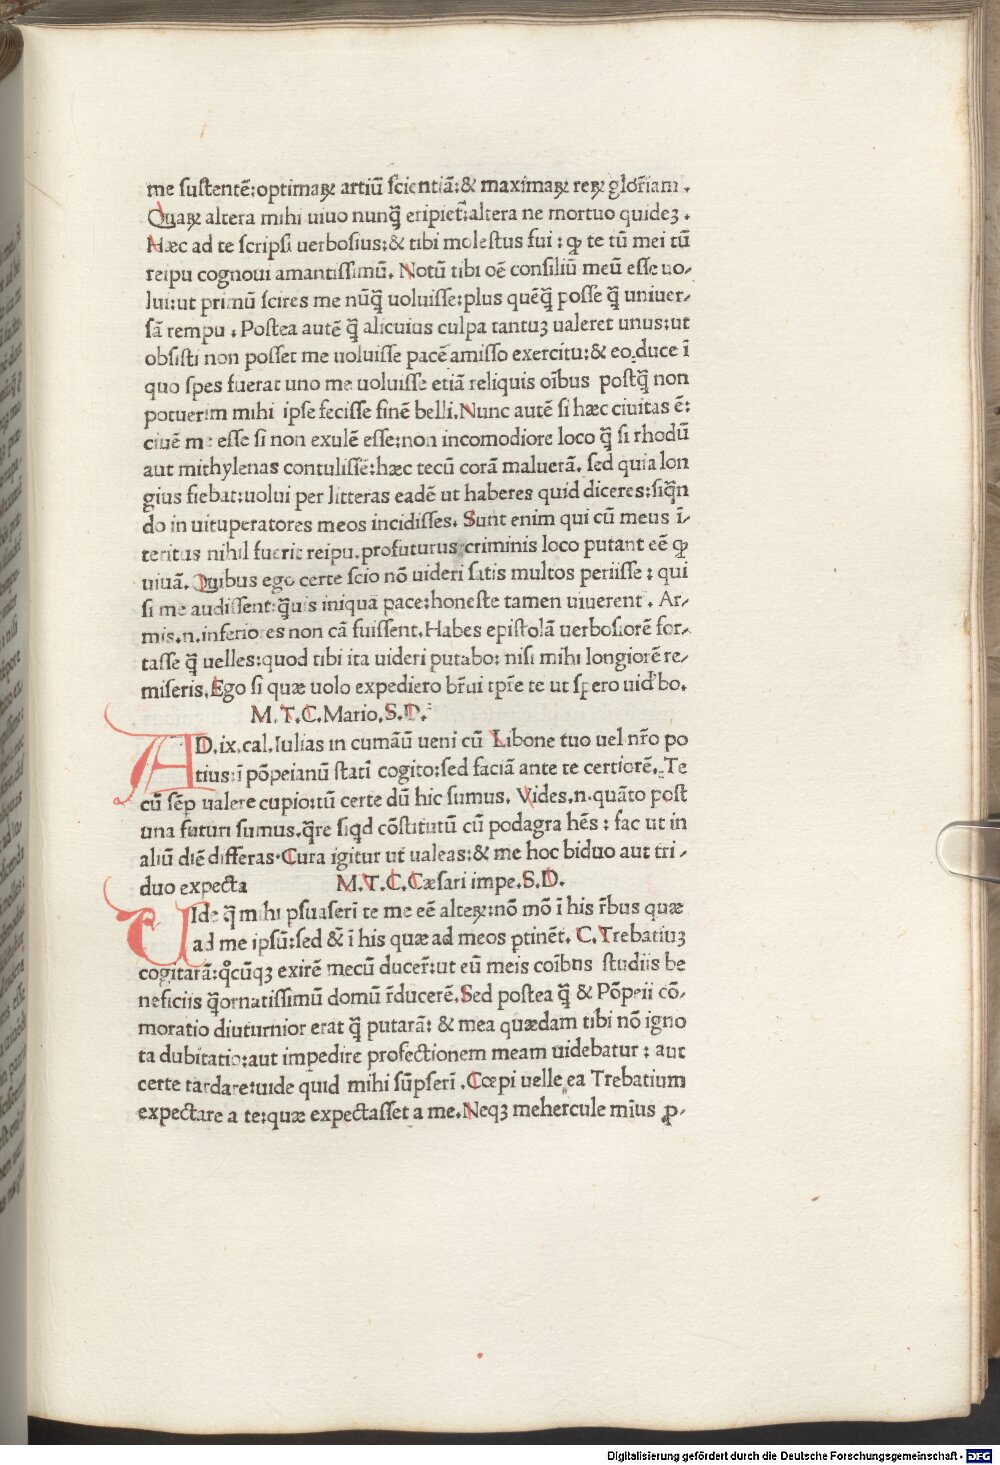 me ſuſtentē:optimaꝝ artiū ſcientiā:& maximaꝝ reꝝ glōriam .
Quaꝝ altera mihi uiuo nunꝗ̄ eripiet̄:altera ne mortuo quideꝫ .
Hæc ad te ſcripſi uerboſius:& tibi moleſtus fui : ꝙ te tū mei tū
reipu cognoui amantiſſimū. Notū tibi oē conſiliū meū eſſe uo⸗
lui:ut primū ſcires me nūꝗ̄ uoluiſſe:plus quēꝗ̄ poſſe ꝗ̄ uniuer⸗
ſā rempu . Poſtea autē ꝗ̄ alicuius culpa tantuꝫ ualeret unus:ut
obſiſti non poſſet me uoluiſſe pacē amiſſo exercitu:& eo duce ī
quo ſpes fuerat uno me uoluiſſe etiā reliquis oībus poſtꝗ̄ non
potuerim mihi ipſe feciſſe finē belli.Nunc autē ſi hæc ciuitas ē:
ciuē me eſſe ſi non exulē eſſe:non incomodiore loco ꝗ̄ ſi rhodū
aut mithylenas contuliſſē:hæc tecū corā maluerā. ſed quia lon
gius fiebat:uolui per litteras eadē ut haberes quid diceres:ſiꝗ̄n
do in uituperatores meos incidiſſes. Sunt enim qui cū meus ī⸗
teritus nihil fuerit reipu.profuturus:criminis loco putant eē ꝙ
uiuā. Quibus ego certe ſcio nō uideri ſatis multos periiſſe : qui
ſi me audiſſent:ꝗ̄uis iniqua pace:honeſte tamen uiuerent . Ar⸗
mis.n.inferiores non cā fuiſſent.Habes epiſtolā uerboſiorē for⸗
taſſe ꝗ̄ uelles:quod tibi ita uideri putabo: niſi mihi longiorē re⸗
miſeris.Ego ſi quæ uolo expediero br̄ui tpr̄e te ut ſpero uid̄bo.
M.T.C.Mario.S.D.
AD.ix.cal.Iulias in cumāū ueni cū Libone tuo uel nr̄o po
tius:ī pōpeianū ſtatī cogito:ſed faciā ante te certiorē. Te
cū ſēp ualere cupio:tū certe dū hic ſumus. Vides.n.quāto poſt
una futuri ſumus.ꝗ̄re ſiqd cōſtitutū cū podagra hēs : fac ut in
aliū diē differas.Cura igitur ut ualeas:& me hoc biduo aut tri⸗
duo expecta M.T.C.Cæſari impe.S.D.
UIde ꝗ̄ mihi pſuaſerī te me eē alteꝝ:nō mō ī his r̄bus quæ
ad me ipſū:ſed & ī his quæ ad meos ptinēt. C.Trebatiuꝫ
cogitarā:qͦcūqꝫ exirē mecū ducer̄:ut eū meis coībus ſtudiis be
neficiis ꝗ̄ornatiſſimū domū r̄ducerē.Sed poſtea ꝗ̄ & Pōpeii cō⸗
moratio diuturnior erat ꝗ̄ putarā: & mea quædam tibi nō igno
ta dubitatio:aut impedire profectionem meam uidebatur : aut
certe tardare:uide quid mihi ſūpſerī .Cœpi uelle ea Trebatium
expectare a te:quæ expectaſſet a me.Neqꝫ mehercule mīus ꝓ⸗
Digitalisierung gefördert durch die Deutsche Forschungsgemeinschaft - DFG